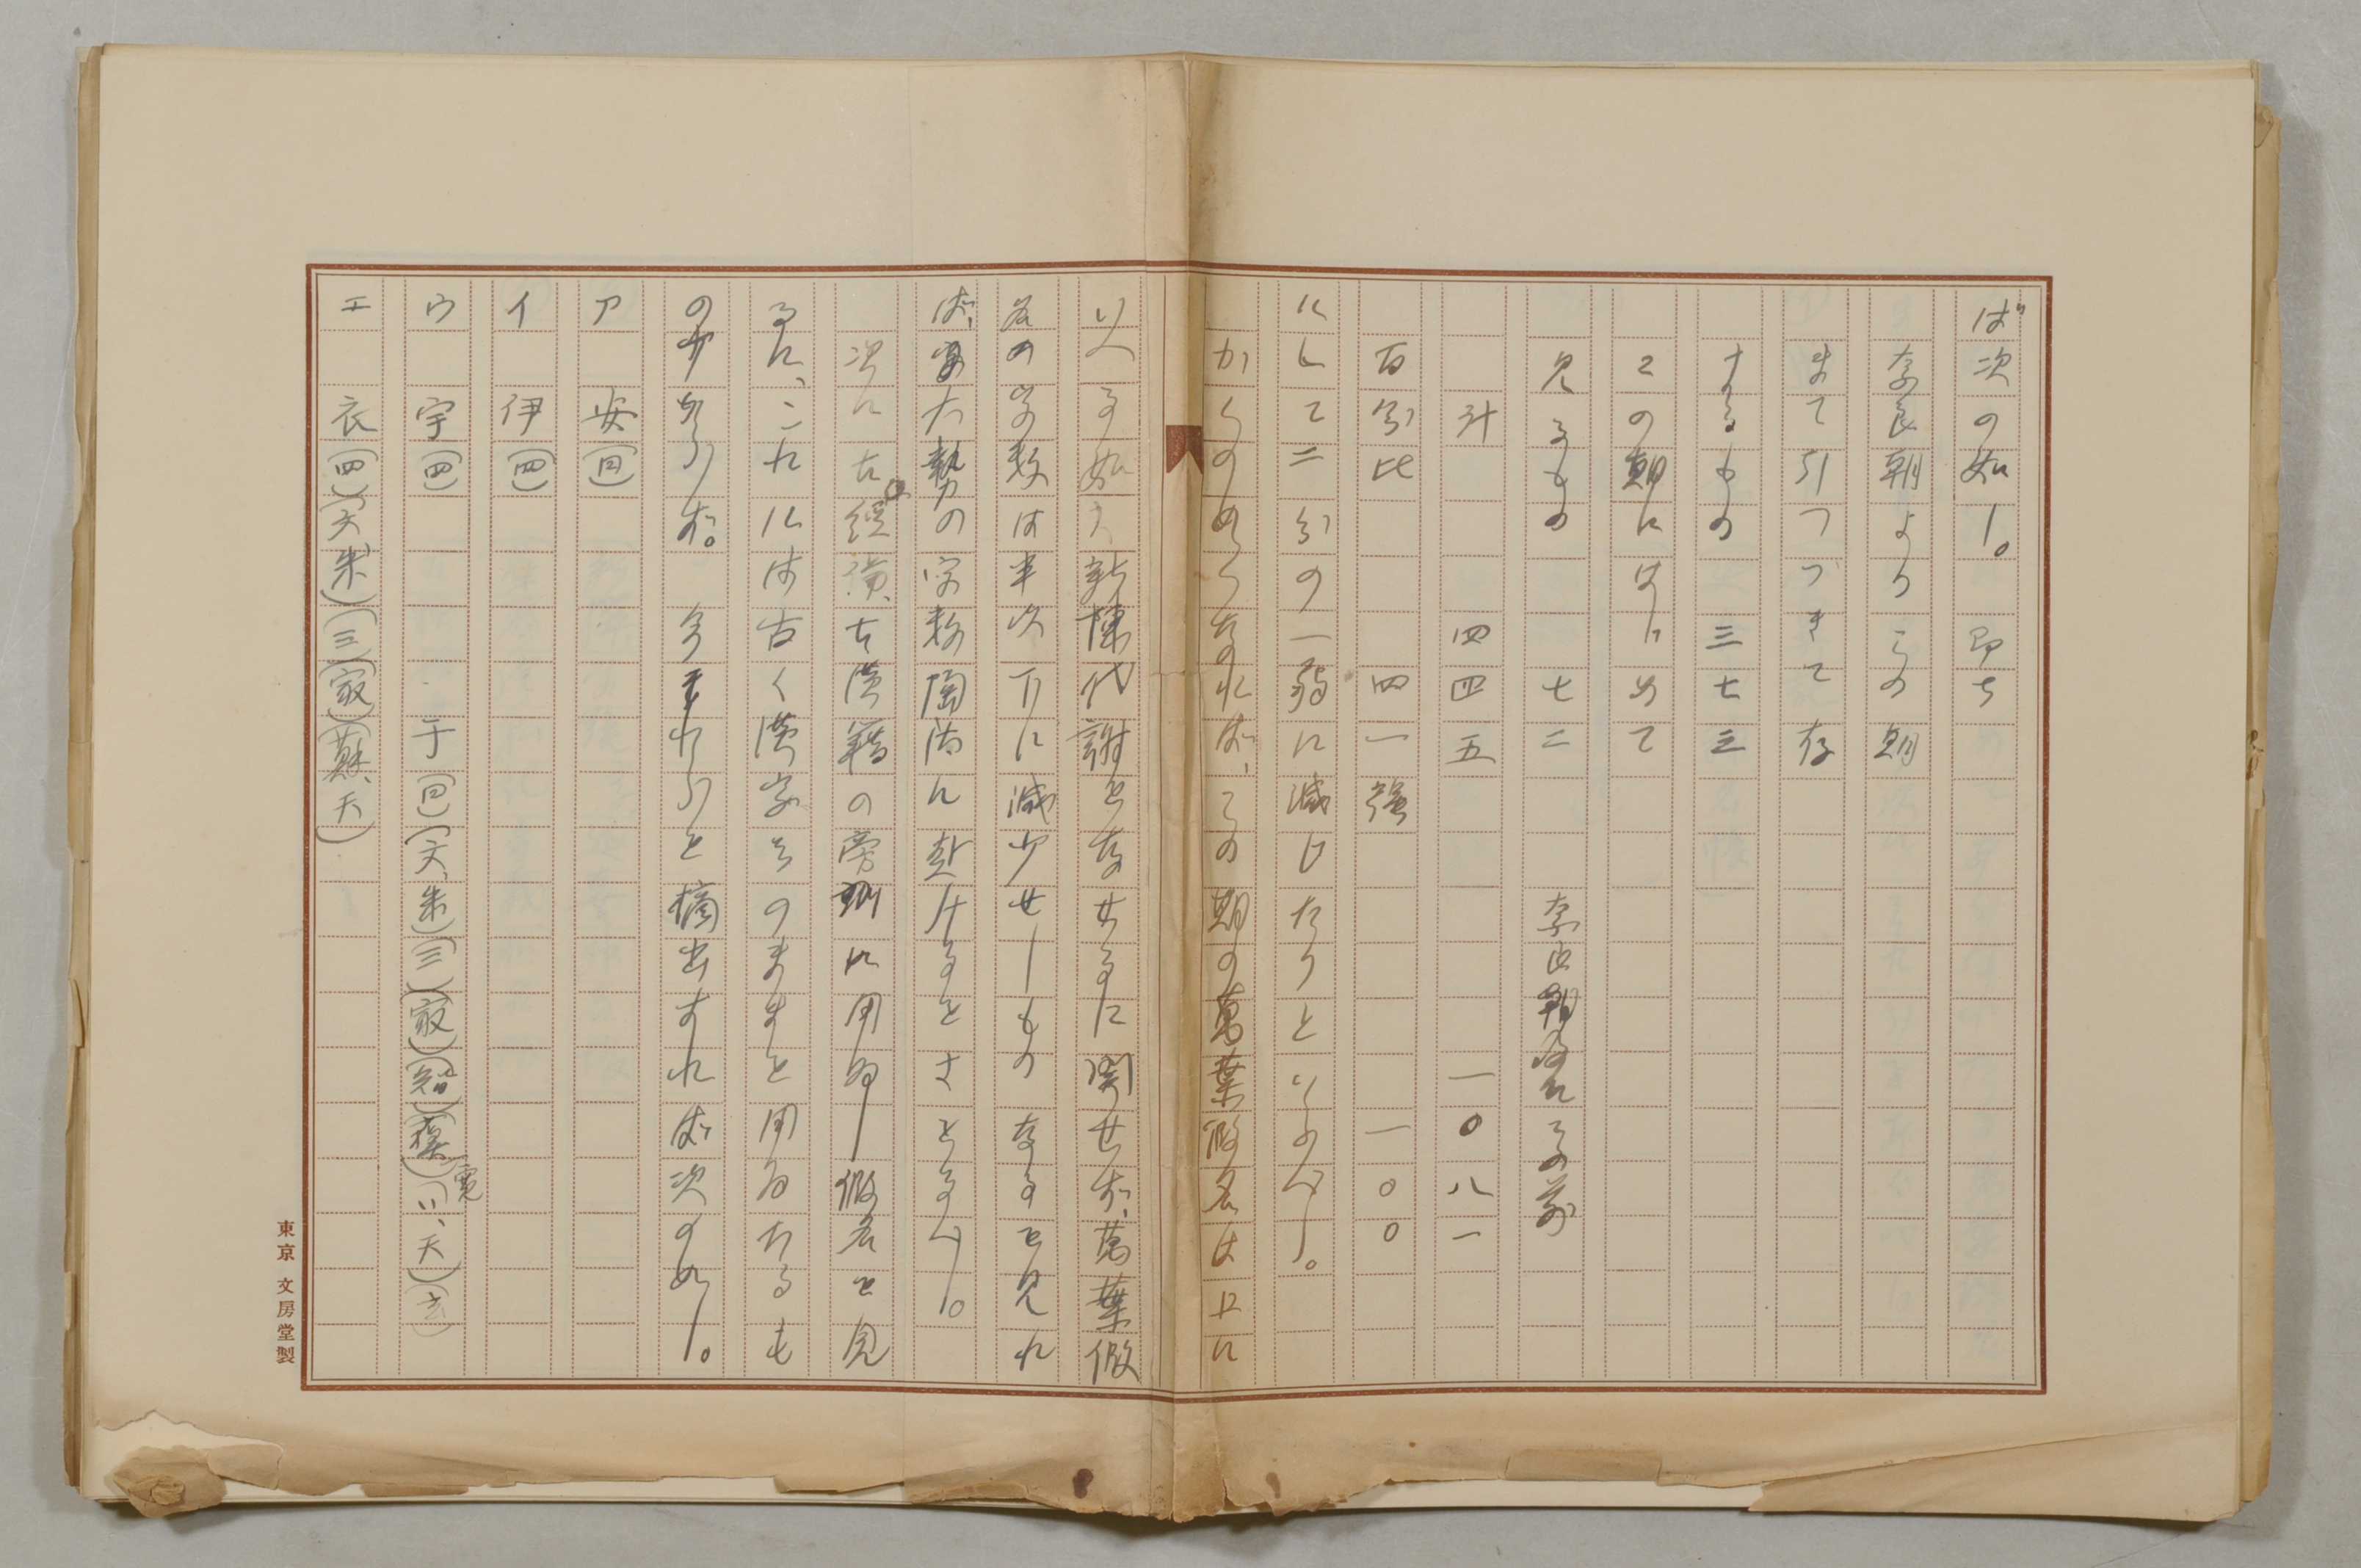 ば次の如し。即ち
奈良朝よりこの期
まで引つづきて存
するもの 三七三
この期にはじめて
見るもの 七二 奈良朝及その前
計 四四五 一〇八一
百分比 四一強 一〇〇
にして二分の一弱に減じたりといふべし。
かくの如くなれば、この期の萬葉假名は上に
いへる如き新陳代謝をなせるに関せず、萬葉假
名の字数は半以下に減少せしものなるを見れ
ば、實大勢の字数陶汰に赴けるをさとるべし。
次に古經讀、古漢籍の旁訓に用ゐし假名を見
るに、これには古く漢字そのままを用ゐたるも
の少からず。今それらを摘出すれば次の如し。
ア 安(四)
イ 伊(四)
ウ 宇(四) 于(四)(天、朱)(三)(家)(智)
エ 衣(四)(天朱)(三)(家)(蘇、天)
東京 文房堂製